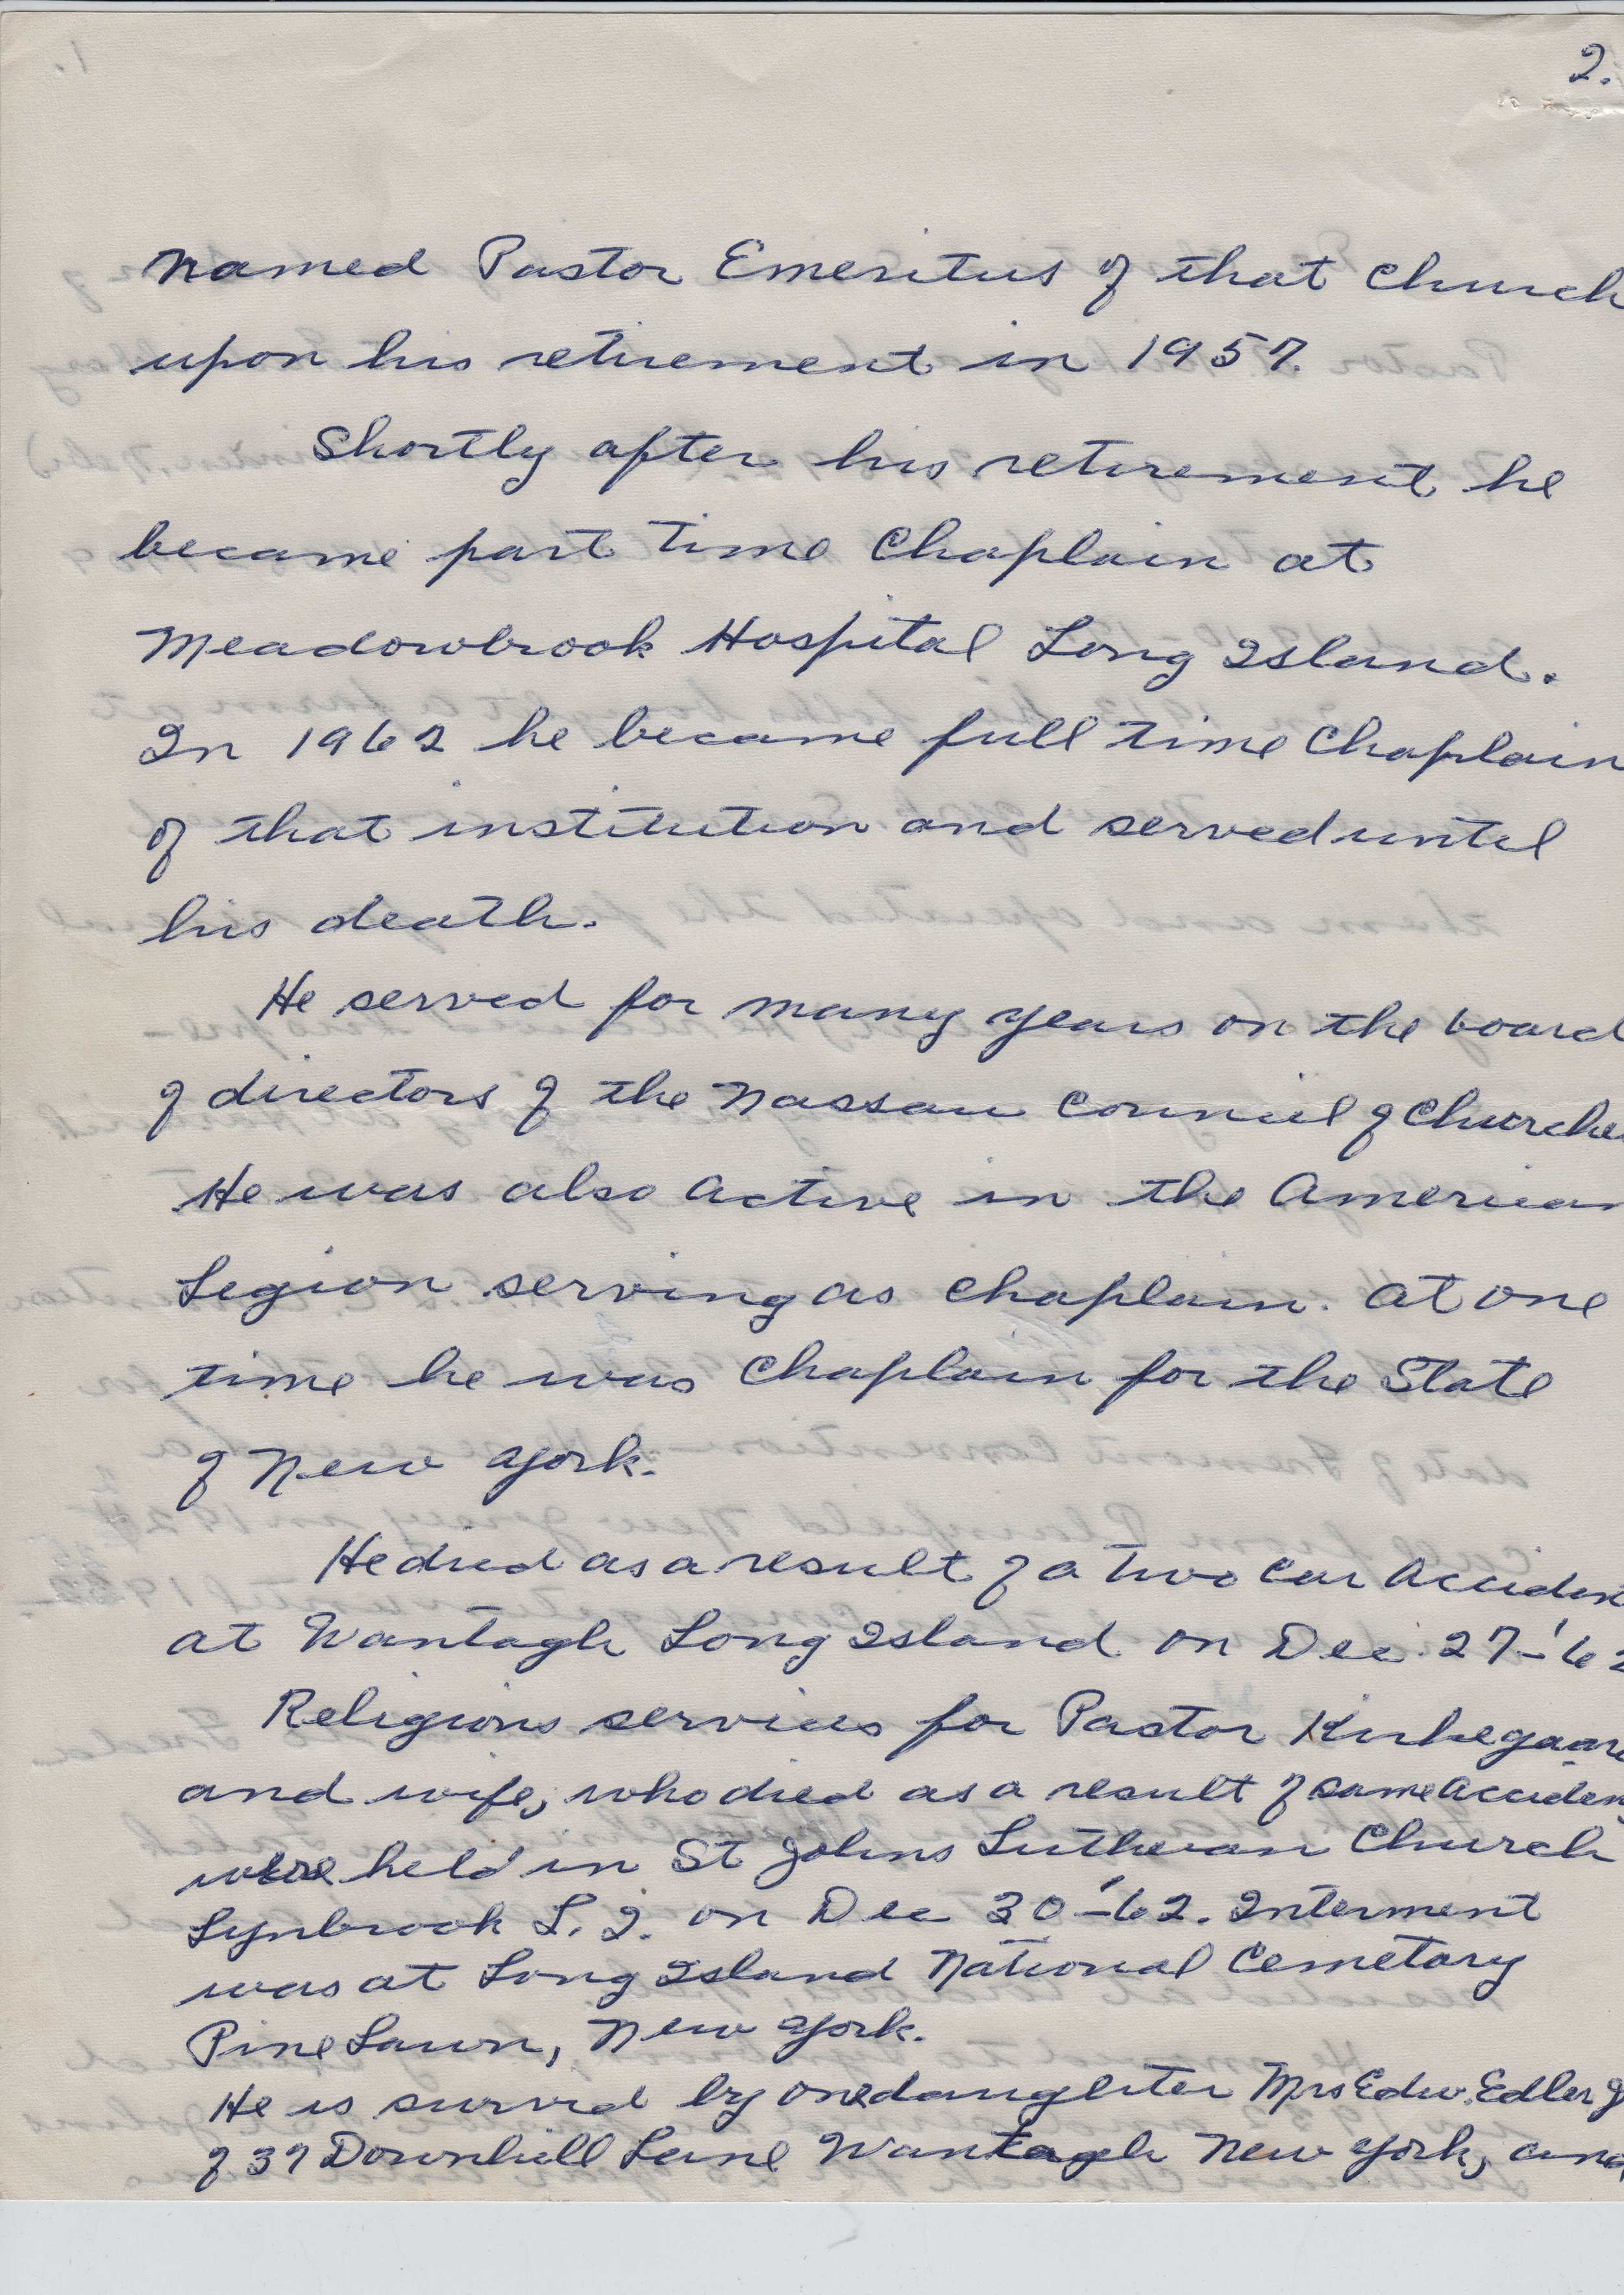 2.
named Pastor Emeritus of that Church
upon his retirement in 1957.
Shortly after his retirement he
became part time Chaplain at
Meadowbrook Hospital Long Island.
In 1962 he became full time Chaplain
of that institution and served until
his death.
He served for many years on the board
of directors of the Nassau Council of Churche
He was also active in the American
Legion serving as Chaplain. At one
time he was Chaplain for the State
of New York.
He died as a result of a two car acciden
at Wantagh Long Island on Dec. 27-'62
Religious services for Pastor Kirkegaar
and wife, who died as a result of same acciden
were held in St Johns Lutheran Church
Lynbrook L.I. on Dec 30-'62. Interment
was at Long Island National Cemetary
Pine Lawn, New York.
He is survied by one daughter Mrs Edw. Edler J
of 37 Downhill Lane Wantagh New York, and